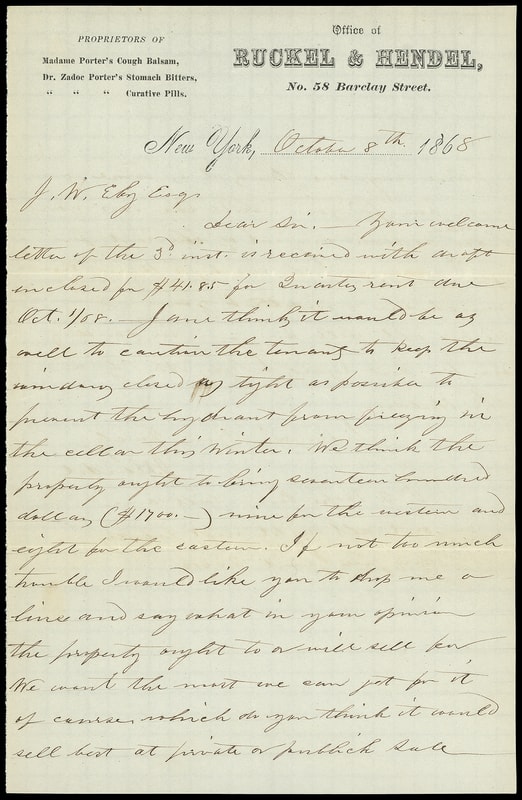 PROPRIETORS OF
Madame Porter's Cough Balsam,
Dr. Zadoc Porter's Stomach Bitters,
" " " Curative Pills.
Office of
RUCKEL & HENDEL,
No. 58 Barclay Street.
New York, October 8th 1868
J. W. Eby Esqr
Dear Sir. — Your welcome
letter of the 3d inst. is received with draft
inclosed for $41.85 for Quarters rent due
Oct. 1/68. — I think it would be as
well to caution the tenants to keep the
windows closed as tight as possible to
prevent the hydrant from freezing in
the cellar this Winter. We think the
property ought to bring seventeen hundred
dollars ($1700.—) nine for the western and
eight for the eastern. If not too much
trouble I would like you to drop me a
line and say what in your opinion
the property ought to or will sell for
We want the most we can get for it
of course, which do you think it would
sell best at private or publick sale